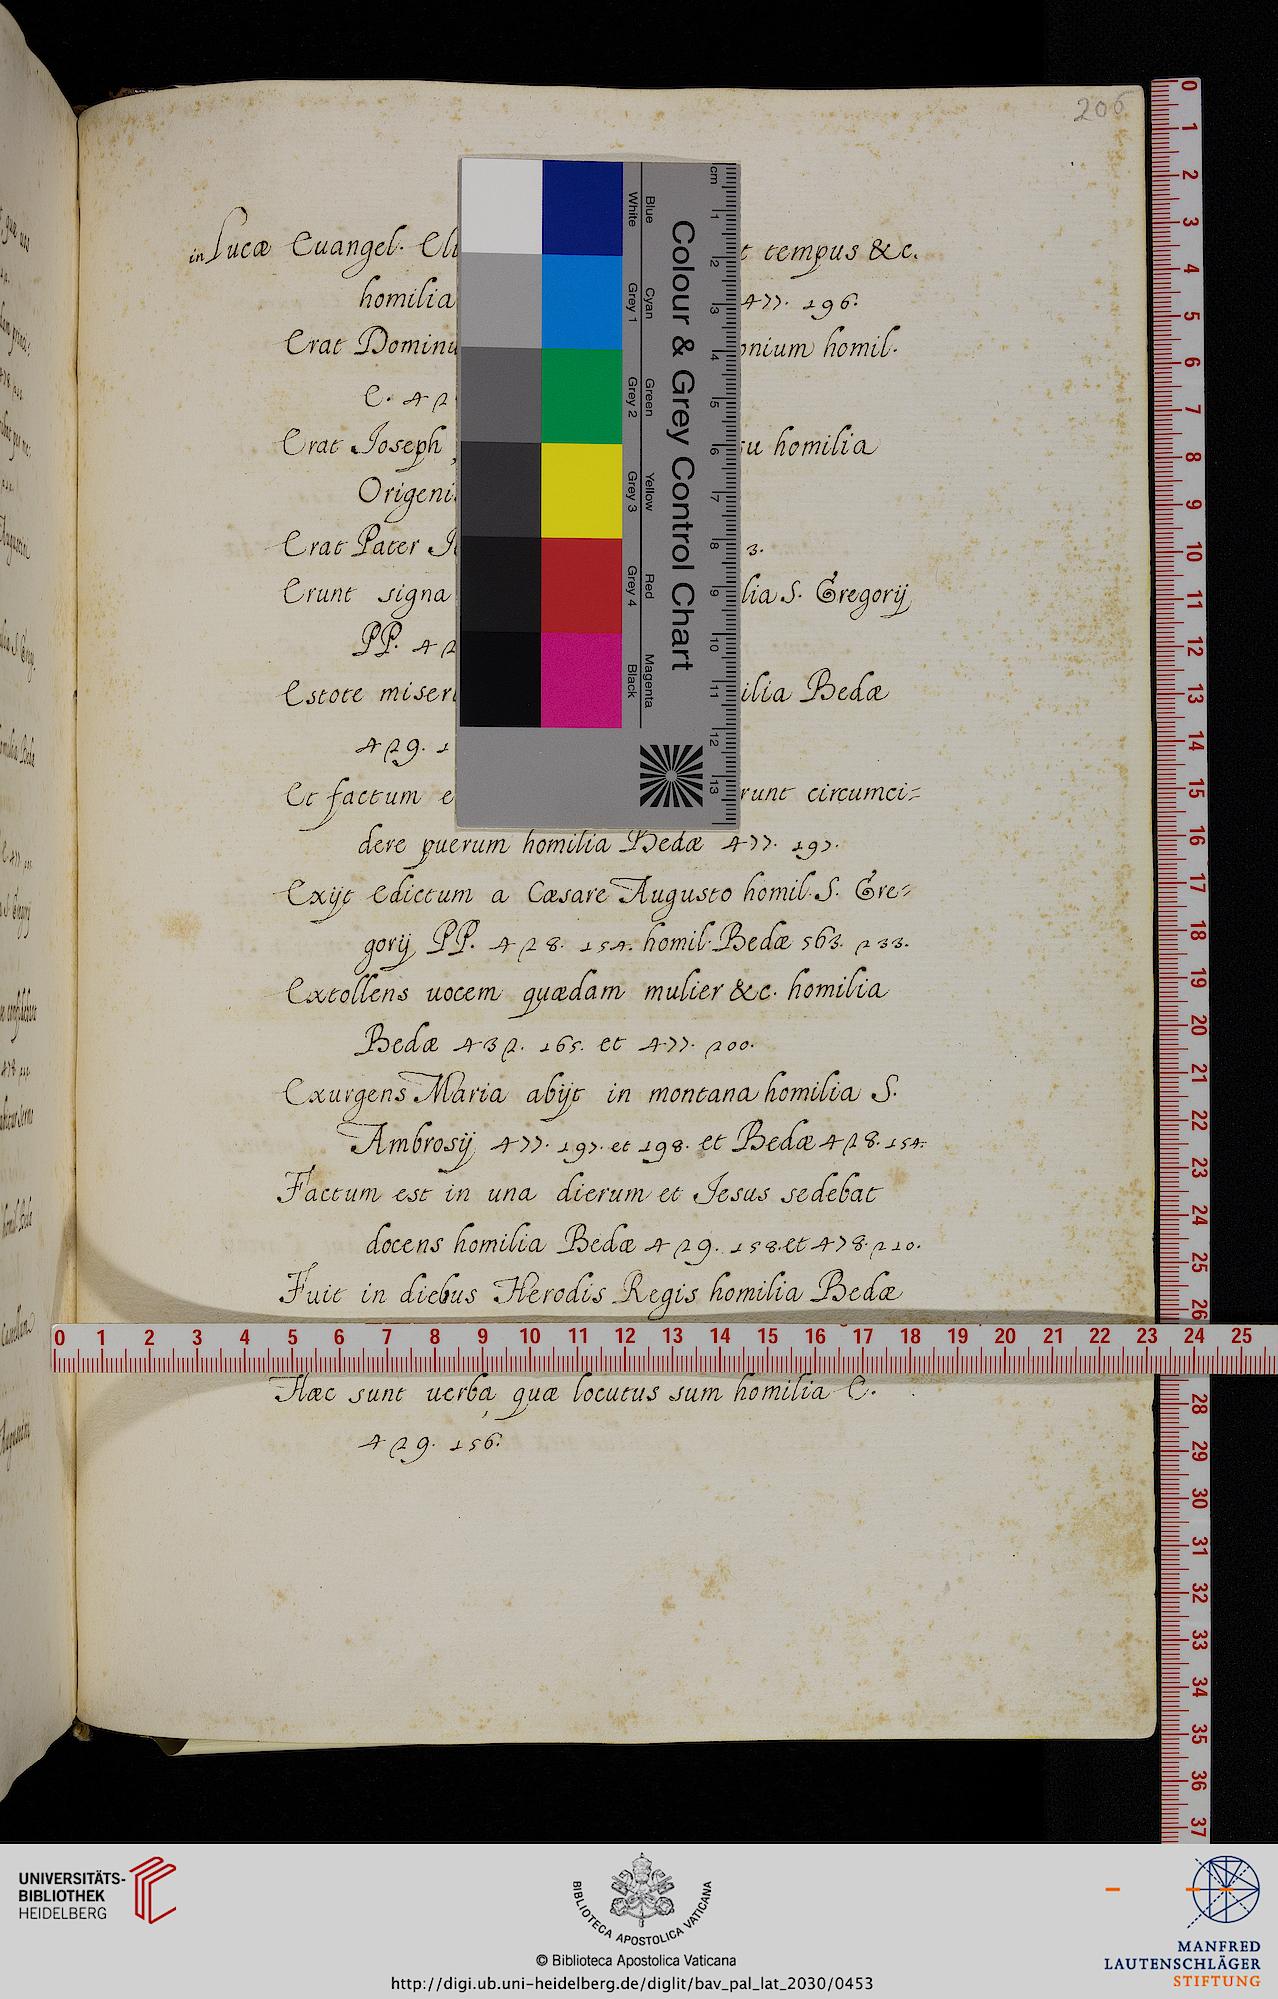 206
in Lucæ Euangel. Eli t tempus &c.
homilia 477. 196.
Erat Dominu onium homil.
E. 42
Erat Ioseph su homilia
Origeni
Erat Pater I 3.
Erunt signa lia S. Gregorij
PP. 42
Estote miseri ilia Bedæ
429. 1
Et factum e runt circumci=
dere puerum homilia Bedæ 477. 197.
Exijt edictum a Cæsare Augusto homil. S. Gre=
gorij PP. 428. 154. homil. Bedæ 563. 233.
Extollens uocem quædam mulier &c. homilia
Bedæ 432. 165. et 477. 200.
Exurgens Maria abijt in montana homilia S.
Ambrosij 477. 197. et 198. et Bedæ 428. 154.
Factum est in una dierum et Iesus sedebat
docens homilia Bedæ 429. 158. et 478. 210.
Fuit in diebus Herodis Regis homilia Bedæ
Hæc sunt uerba quæ locutus sum homilia E.
429. 156.
Colour & Grey Control Chart
Blue Cyan Green Yellow Red Magenta
White Grey 1 Grey 2 Grey 3 Grey 4 Black
cm 1 2 3 4 5 6 7 8 9 10 11 12 13
0 1 2 3 4 5 6 7 8 9 10 11 12 13 14 15 16 17 18 19 20 21 22 23 24 25
0 1 2 3 4 5 6 7 8 9 10 11 12 13 14 15 16 17 18 19 20 21 22 23 24 25 26 28 29 30 31 32 33 34 35 36 37
UNIVERSITÄTS-
BIBLIOTHEK
HEIDELBERG
BIBLIOTECA APOSTOLICA VATICANA
© Biblioteca Apostolica Vaticana
http://digi.ub.uni-heidelberg.de/diglit/bav_pal_lat_2030/0453
MANFRED
LAUTENSCHLÄGER
STIFTUNG